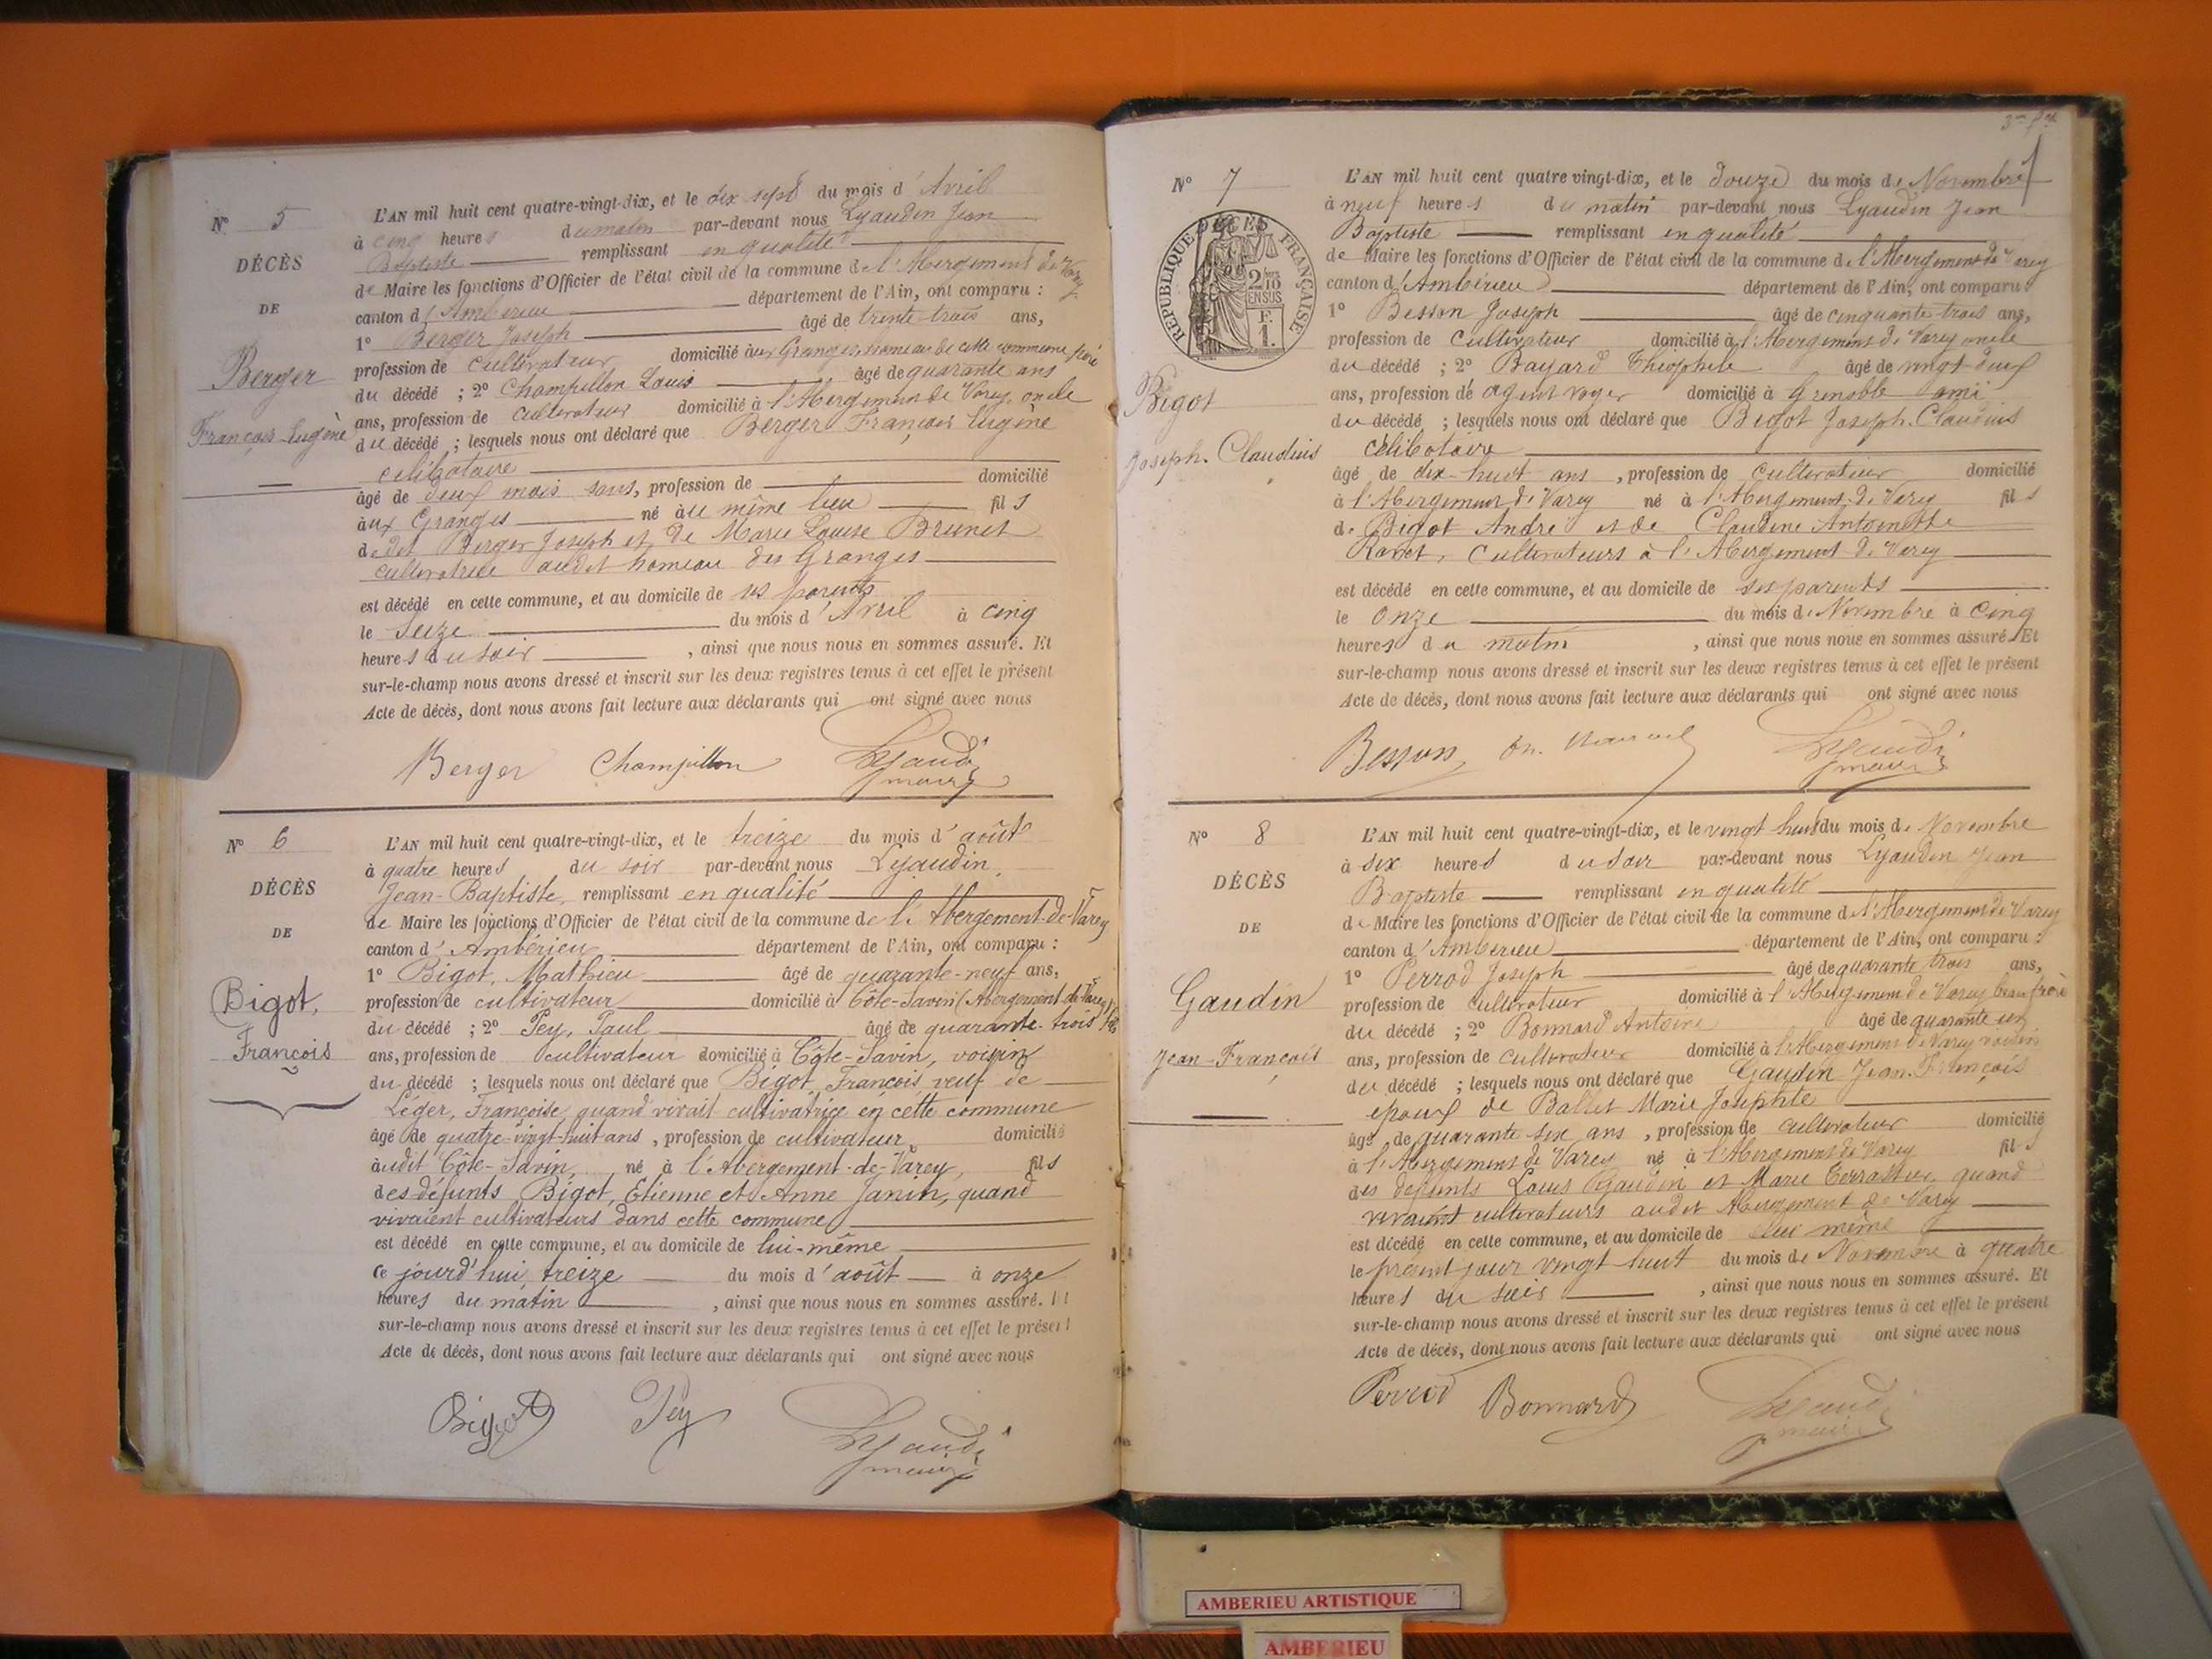 N° 5
DÉCÈS
DE
Berger
François-Eugène
L'AN mil huit cent quatre-vingt-dix, et le dix sept du mois d'Avril
à cinq heures du matin par-devant nous Lyaudin Jean
Baptiste remplissant en qualité
de Maire les fonctions d'Officier de l'état civil de la commune de l'Abergement de Varey
canton d'Ambérieu département de l'Ain, ont comparu :
1° Berger Joseph âgé de trente-trois ans,
profession de cultivateur domicilié aux Granges, hameau de cette commune père
du décédé ; 2° Champillon Louis âgé de quarante ans
ans, profession de cultivateur domicilié à l'Abergement de Varey, oncle
du décédé ; lesquels nous ont déclaré que Berger François Eugène
célibataire
âgé de deux mois sans, profession de domicilié
aux Granges né au même lieu fils
de dit Berger Joseph et de Marie Louise Brunet
cultivatrice audit hameau des Granges
est décédé en cette commune, et au domicile de ses parents
le seize du mois d'Avril à cinq
heures du soir , ainsi que nous nous en sommes assuré. Et
sur-le-champ nous avons dressé et inscrit sur les deux registres tenus à cet effet le présent
Acte de décès, dont nous avons fait lecture aux déclarants qui ont signé avec nous
Berger Champillon Lyaudin
maire
N° 6
DÉCÈS
DE
Bigot,
François
L'AN mil huit cent quatre-vingt-dix, et le treize du mois d'août
à quatre heures du soir par-devant nous Lyaudin,
Jean-Baptiste, remplissant en qualité
de Maire les fonctions d'Officier de l'état civil de la commune de l'Abergement-de-Varey
canton d'Ambérieu département de l'Ain, ont comparu :
1° Bigot, Mathieu âgé de quarante-neuf ans,
profession de cultivateur domicilié à Côte-Savin (Abergement-de-Varey) fils
du décédé ; 2° Pey, Paul âgé de quarante-trois
ans, profession de cultivateur domicilié à Côte-Savin, voisin
du décédé ; lesquels nous ont déclaré que Bigot, François veuf de
Léger, Françoise, quand vivait cultivatrice en cette commune
âgé de quatre-vingt-huit ans, profession de cultivateur, domicilié
audit Côte-Savin, né à l'Abergement-de-Varey, fils
des défunts Bigot, Etienne et Anne Janin, quand
vivaient cultivateurs dans cette commune
est décédé en cette commune, et au domicile de lui-même
ce jourd'hui treize du mois d'août à onze
heures du matin , ainsi que nous nous en sommes assuré. Et
sur-le-champ nous avons dressé et inscrit sur les deux registres tenus à cet effet le présent
Acte de décès, dont nous avons fait lecture aux déclarants qui ont signé avec nous
Bigot Pey Lyaudin
maire
3me fet
N° 7
DÉCÈS
RÉPUBLIQUE FRANÇAISE
2/10 EN SUS
F. 1.
Bigot
Joseph. Claudius
L'AN mil huit cent quatre vingt-dix, et le douze du mois de Novembre
à neuf heures du matin par-devant nous Lyaudin Jean
Baptiste remplissant en qualité
de Maire les fonctions d'Officier de l'état civil de la commune de l'Abergement de Varey
canton d'Ambérieu département de l'Ain, ont comparu
1° Besson Joseph âgé de cinquante-trois ans,
profession de cultivateur domicilié à l'Abergement de Varey oncle
du décédé ; 2° Bayard Théophile âgé de vingt-deux
ans, profession de agent voyer domicilié à Grenoble ami
du décédé ; lesquels nous ont déclaré que Bigot Joseph. Claudius
célibataire
âgé de dix-huit ans , profession de cultivateur domicilié
à l'Abergement de Varey né à l'Abergement de Varey fils
de Bigot André et de Claudine Antoinette
Ravet, cultivateurs à l'Abergement de Varey
est décédé en cette commune, et au domicile de ses parents
le onze du mois de Novembre à cinq
heures du matin , ainsi que nous nous en sommes assuré. Et
sur-le-champ nous avons dressé et inscrit sur les deux registres tenus à cet effet le présent
Acte de décès, dont nous avons fait lecture aux déclarants qui ont signé avec nous
Besson Lyaudin
maire
N° 8
DÉCÈS
DE
Gaudin
Jean-François
L'AN mil huit cent quatre-vingt-dix, et le vingt huit du mois de Novembre
à six heures du soir par-devant nous Lyaudin Jean
Baptiste remplissant en qualité
de Maire les fonctions d'Officier de l'état civil de la commune de l'Abergement de Varey
canton d'Ambérieu département de l'Ain, ont comparu :
1° Perrod Joseph âgé de quarante trois ans,
profession de cultivateur domicilié à l'Abergement de Varey beau frère
du décédé ; 2° Bonnard Antoine âgé de quarante un
ans, profession de cultivateur domicilié à l'Abergement de Varey voisin
du décédé ; lesquels nous ont déclaré que Gaudin Jean. François
époux de Ballet Marie Josephte
âgé de quarante six ans , profession de cultivateur domicilié
à l'Abergement de Varey né à l'Abergement de Varey fils
des défunts Louis Gaudin et Marie quand
vivaient cultivateurs audit Abergement de Varey
est décédé en cette commune, et au domicile de lui même
le présent jour vingt huit du mois de Novembre à quatre
heures du soir , ainsi que nous nous en sommes assuré. Et
sur-le-champ nous avons dressé et inscrit sur les deux registres tenus à cet effet le présent
Acte de décès, dont nous avons fait lecture aux déclarants qui ont signé avec nous
Perrod Bonnard Lyaudin
maire
AMBERIEU ARTISTIQUE
AMBERIEU